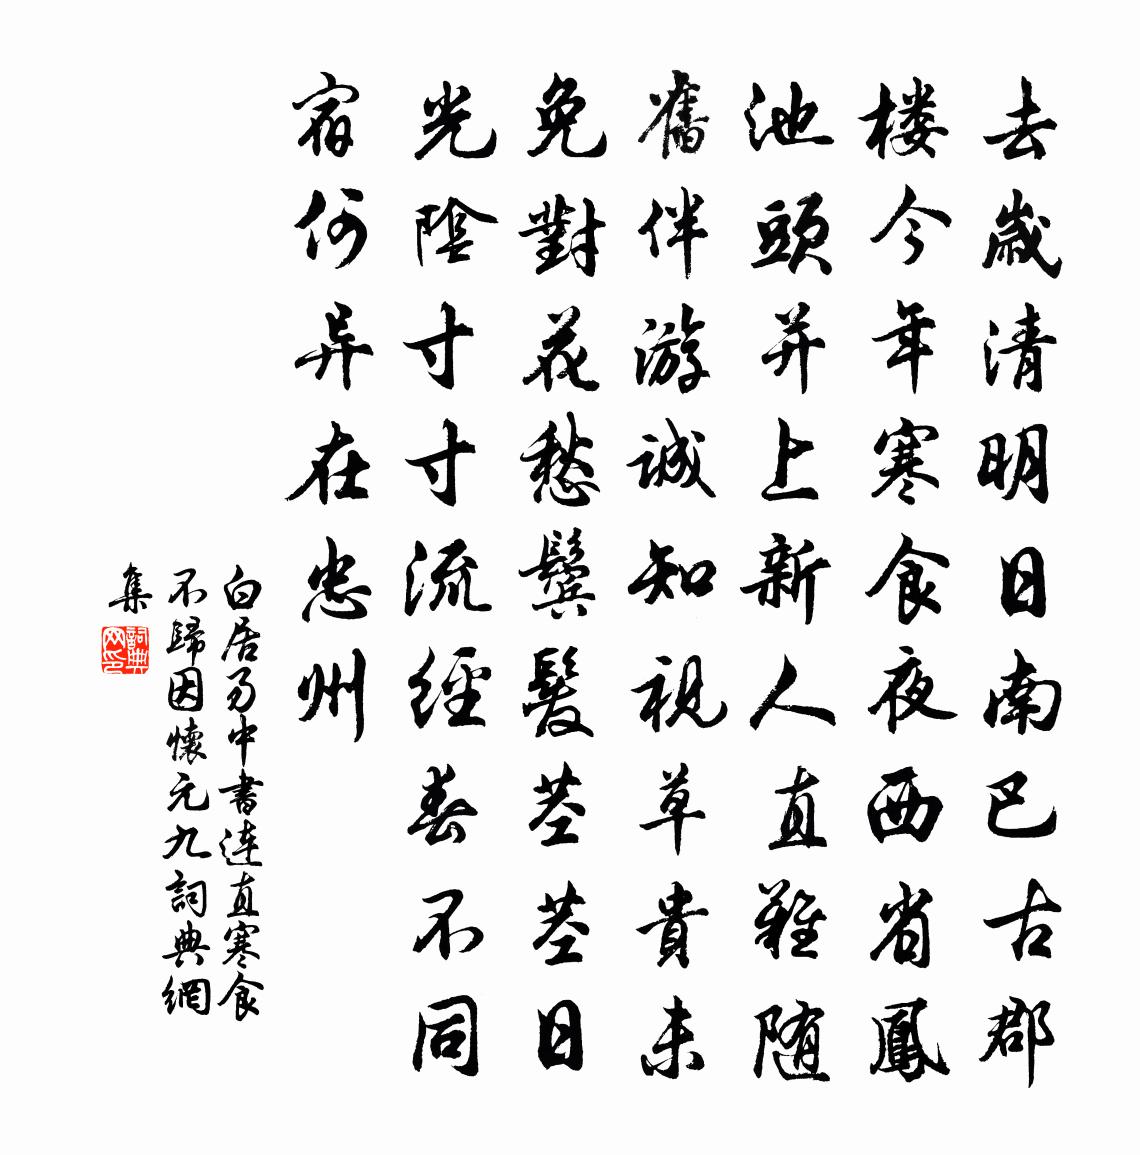 去歲清明日南巴古郡
楼今年寒食夜西省鳳
池頭并上新人直難随
舊伴游誠知視草貴未
免對花愁鬢髮莖莖日
光陰寸寸流經春不同
宿何异在忠州
白居易中書連直寒食
不歸因懷元九詞典網
集
詞典网印